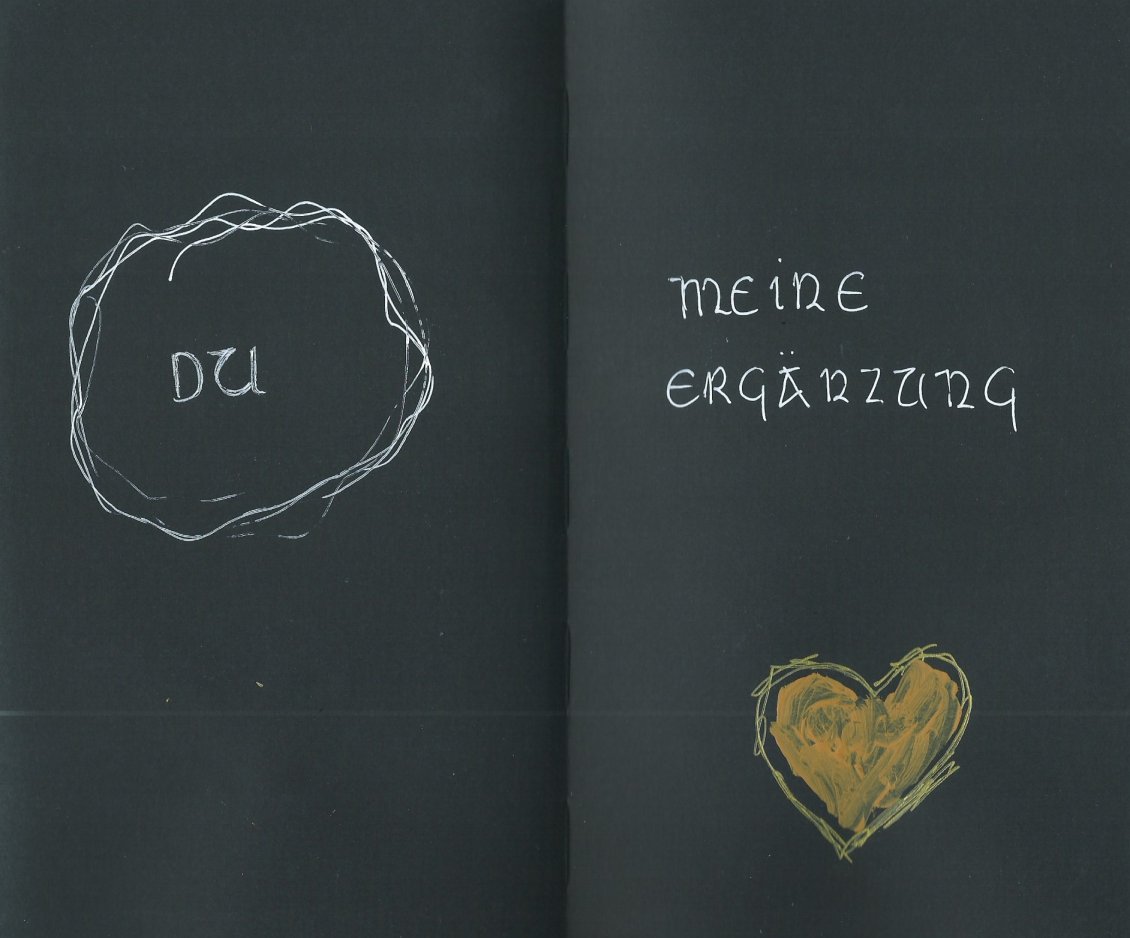 DU
MEINE
ERGÄNZUNG